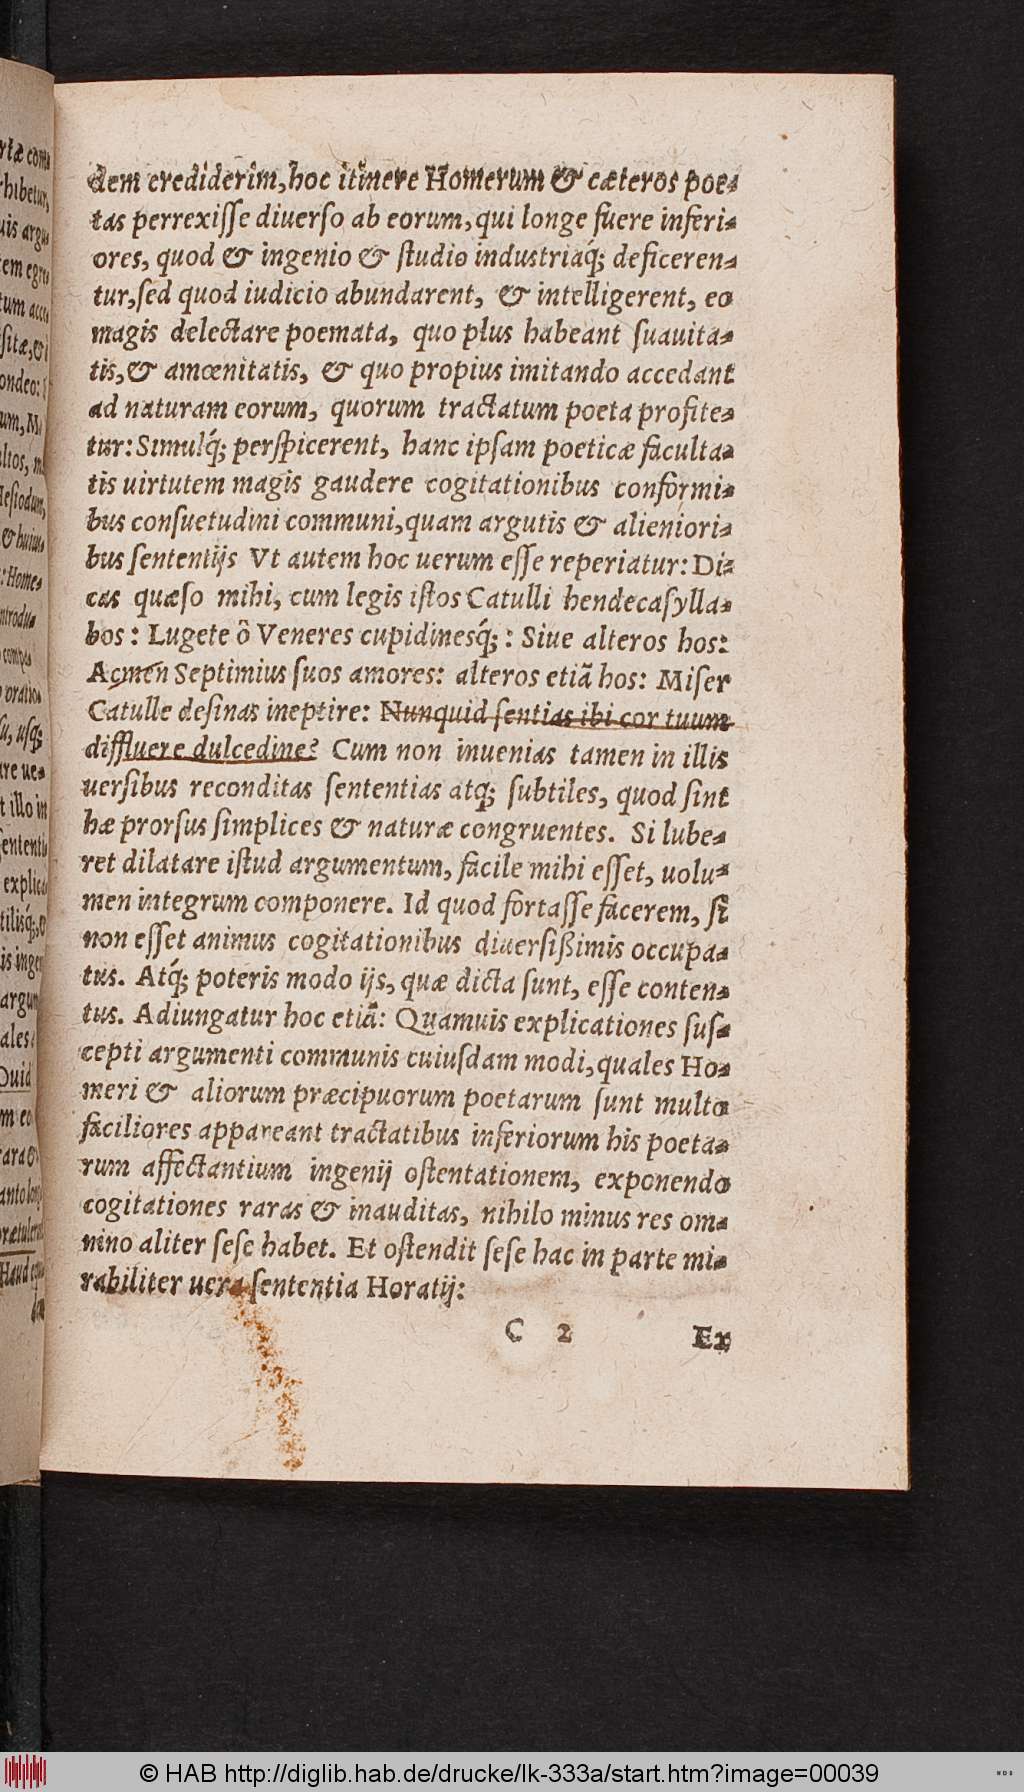 dem crediderim, hoc itinere Homerum & cæteros poe-
tas perrexiſſe diuerſo ab eorum, qui longe fuere inferi-
ores, quod & ingenio & ſtudio industriaq́; deficeren-
tur, ſed quod iudicio abundarent, & intelligerent, eo
magis delectare poemata, quo plus habeant ſuauita-
tis, & amœnitatis, & quo propius imitando accedant
ad naturam eorum, quorum tractatum poeta profite-
tur: Simulq́; perſpicerent, hanc ipſam poeticæ faculta-
tis uirtutem magis gaudere cogitationibus conformi-
bus conſuetudini communi, quam argutis & alieniori-
bus ſententijs Vt autem hoc uerum eſſe reperiatur: Di-
cas quæſo mihi, cum legis iſtos Catulli hendecaſylla-
bos: Lugete ô Veneres cupidinesq́;: Siue alteros hos:
Acmen Septimius ſuos amores: alteros etiã hos: Miſer
Catulle deſinas ineptire: Nunquid ſentias ibi cor tuum
diffluere dulcedine? Cum non inuenias tamen in illis
uerſibus reconditas ſententias atq; ſubtiles, quod ſint
hæ prorſus ſimplices & naturæ congruentes. Si lube-
ret dilatare iſtud argumentum, facile mihi eſſet, uolu-
men integrum componere. Id quod fortaſſe facerem, ſi
non eſſet animus cogitationibus diuerſißimis occupa-
tus. Atq́; poteris modo ijs, quæ dicta ſunt, eſſe conten-
tus. Adiungatur hoc etiã: Quamuis explicationes ſuſ-
cepti argumenti communis cuiuſdam modi, quales Ho-
meri & aliorum præcipuorum poetarum ſunt multo
faciliores appareant tractatibus inferiorum his poeta-
rum affectantium ingenij oſtentationem, exponendo
cogitationes raras & inauditas, nihilo minus res om-
nino aliter ſeſe habet. Et oſtendit ſeſe hac in parte mi-
rabiliter uera ſententia Horatij:
C 2 Ex
© HAB http://diglib.hab.de/drucke/lk-333a/start.htm?image=00039